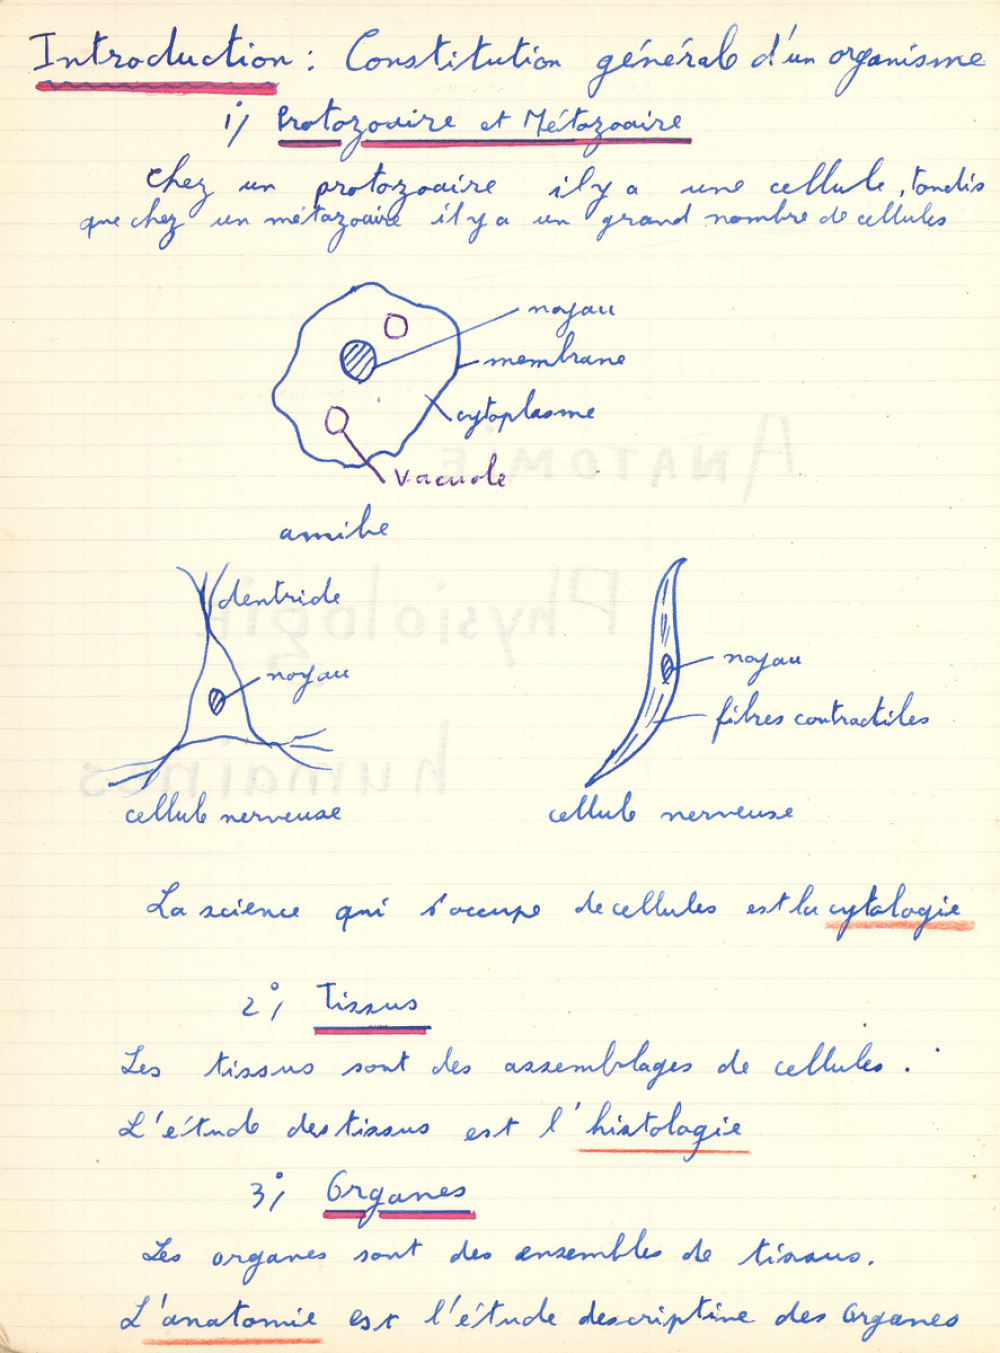 Introduction : Constitution générale d'un organisme
1°/ Protozoaire et Métazoaire
Chez un protozoaire il y a une cellule, tandis
que chez un métazoaire il y a un grand nombre de cellules
noyau
membrane
cytoplasme
vacuole
amibe
dentride
noyau
cellule nerveuse
noyau
fibres contractiles
cellule nerveuse
La science qui s'occupe de cellules est la cytologie
2°/ Tissus
Les tissus sont des assemblages de cellules.
L'étude des tissus est l'histologie
3°/ Organes
Les organes sont des ensembles de tissus.
L'anatomie est l'étude descriptive des Organes
ANATOMIE
Physiologie
humaines